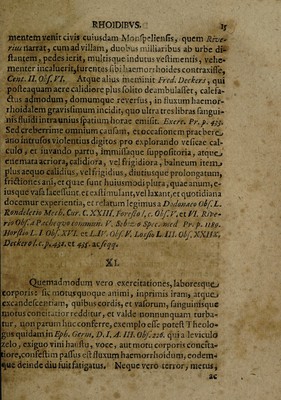 RHOIDIBVS. 25
mentem venit civis cuiusdam Monspelliensis, quem Rive-
rius narrat, cum ad villam, duobus milliaribus ab urbe di-
stantem, pedes ierit, multisque indutus vestimentis, vehe-
menter incaluerit, furentes sibi haemorrhoides contraxisse,
Cent. II. Obs. VI. Atque alius meminit Fred. Deckers, qui
postea quam aere calidiore plus solito deambulasset, calefa-
ctus admodum, domumque reversus, in fluxum haemor-
rhoidalem gravissimum incidit, quo ultra tres libras sangui-
nis fluidi intra unius spatium horae emisit. Exerc. Pr. p. 435.
Sed creberrime omnium causam, et occasionem praebere,
ano intrusos violentius digitos pro explorando vesicae cal-
culo, et iuvando partu, immissaque suppositoria, atque,
enemata acriora, calidiora, vel frigidiora, balneum item,
plus aequo calidius, vel frigidius, diutiusque prolongatum,
frictiones ani, et quae sunt huiusmodi plura, quae anum, e-
iusque vasa lacessunt, et exstimulant, vel laxant, et quotidiana
docemur experientia, et relatum legimus a Dodonaeo Obs. L.
Rondeletio Meth. Cur. C. XXIII. Foresto l. c. Obs. V. et VI. Rive-
rio Obs. a Pachequo commun. V. Bchovio Spec. med. Pr. p. 1180.
Horstio L. I Obs. XVI. et L. IV. Obs. V. Lossio L. III. Obs. XXIIX.
Deckero l. c. p. 432. et 435. ac seqq.
XI.
Quemadmodum vero exercitationes, laboresque,
corporis: sic motus quoque animi, inprimis iram, atque,
excandescentiam, quibus cordis, et vasorum, sanguinisque
motus concitatior redditur, et valde nonnunquam turba-
tur, non parum huc conferre, exemplo esse potest Theolo-
gus quidam in Eph. Germ. D. I. A. III. Obs. 226. qui a leviculo
zelo, exiguo vini haustu, voce, aut motu corporis concita-
tiore, confestim passus est fluxum haemorrhoidum, eodem-
que deinde diu fuit fatigatus. Neque vero terror, metus,
ac